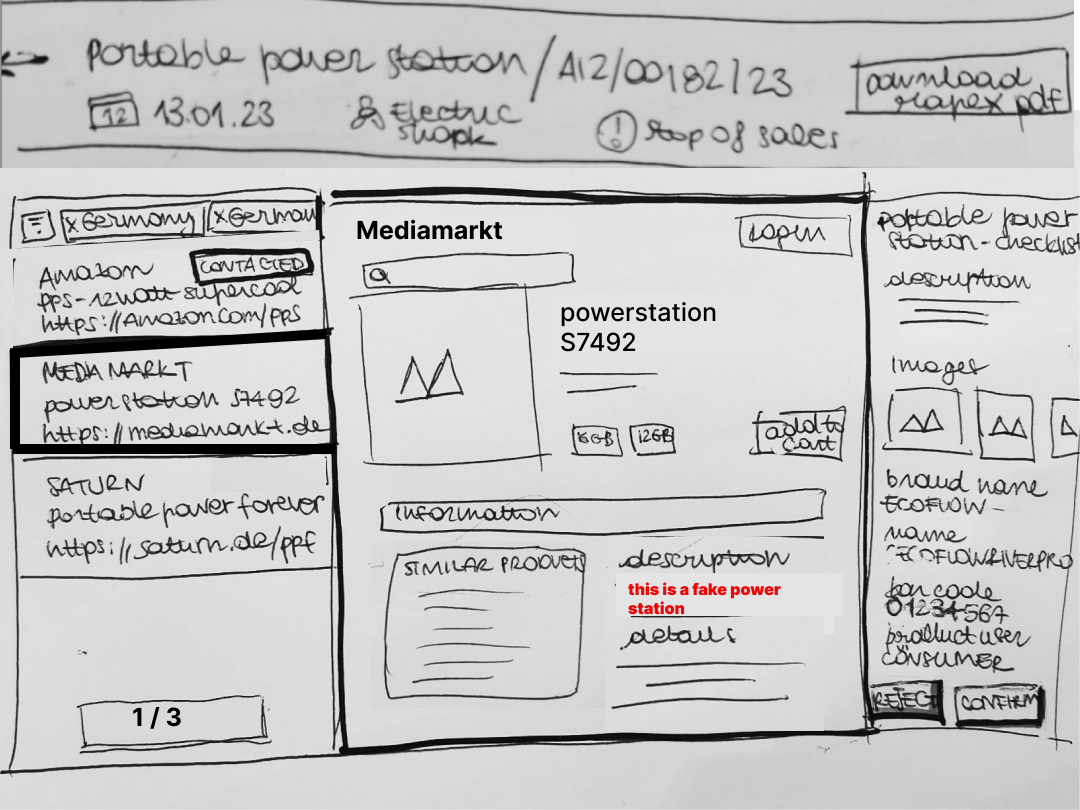 Portable power station / A12/00182/23
Download
rapex pdf
12 13.01.23
Electric
shock
! Stop of sales
x Germany
x German
Amazon
CONTACTED
pps-12watt supercool
https://Amazon.com/pps
MEDIA MARKT
powerstation S7492
https://mediamarkt.de
SATURN
portable power forever
https://saturn.de/ppf
1 / 3
Mediamarkt
Log in
powerstation
S7492
16GB
12GB
add to
cart
information
SIMILAR PRODUCTS
description
this is a fake power
station
details
portable power
station - checklist
description
Images
brand name
ECOFLOW
name
ECOFLOWRIVERPRO
bar code
01234567
product user
CONSUMER
REJECT
CONFIRM